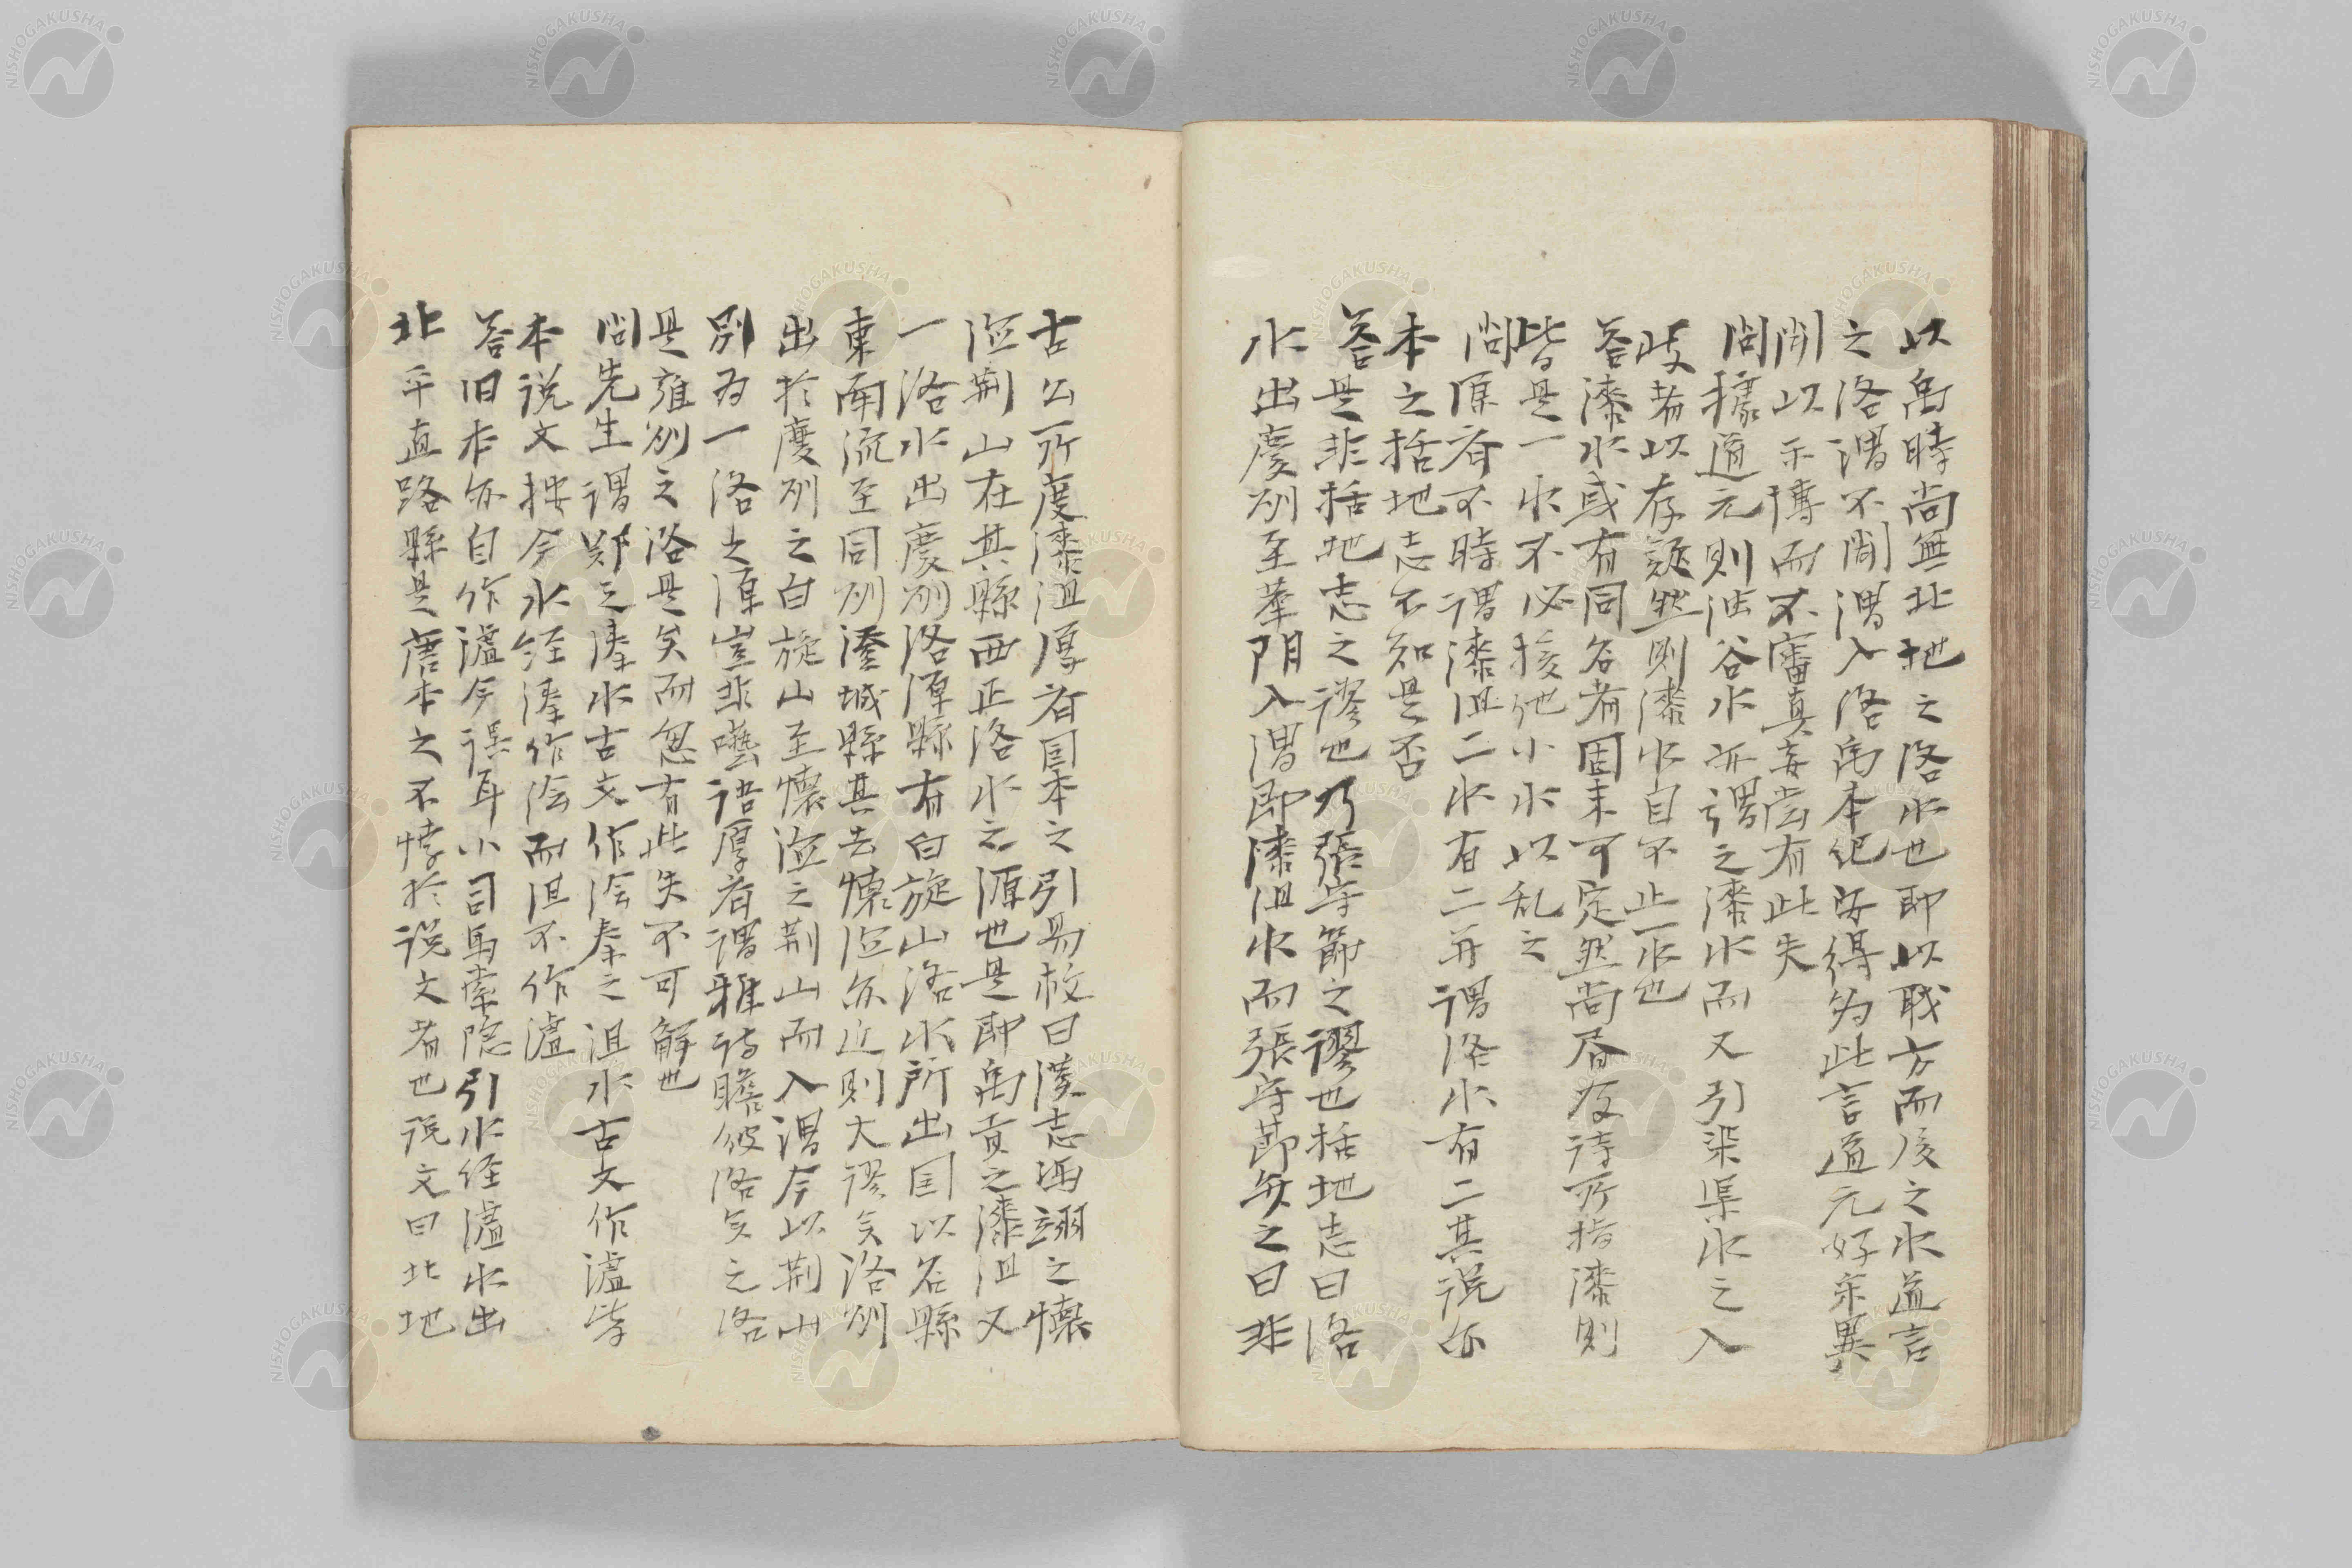 以禹時尚無北地之洛水也即以職方而後之水道言
之洛渭不聞渭入洛禹本紀安得為此言道元好采異
聞以示博而不審真妄嘗有此失
問據道元則浊谷水亦謂之漆水而又引柒渠水之入
岐者以存疑然則漆水自不止一水也
答漆水或有同名者固未可定然尚容攷待所指漆則
皆是一水不必接他小水以乱之
問厚齋不時謂漆沮二水有二并謂洛水有二其説亦
本之括地志不知是否
答是非括地志之謬也乃張守節之謬也括地志曰洛
水出慶州至華陰入渭即漆沮水而張守節矢之曰非
古公所度漆沮厚齋国本之引易校曰漢志馮翊之懷
洍荊山在其縣西正洛水之源也是即禹貢之漆沮又
一洛水出慶州洛源縣有白旋山洛水所出国以名縣
東南流至同州澄城縣其去懷洍亦近則大謬矣洛州
出於慶州之白旋山至懷洍之荊山而入渭今以荊山
別為一洛之源豈非囈語厚齋謂雅詩瞻彼洛矣之洛
是雍州之洛是矣而忽有此失不可解也
問先生謂鄭之溱水古文作潧秦之沮水古文作瀘皆
本説文按今水經溱作潧而沮不作瀘
答旧本亦自作瀘今誤耳小司馬索隐引水経瀘水出
北平直路縣是唐本之不悖於説文者也説文曰北地